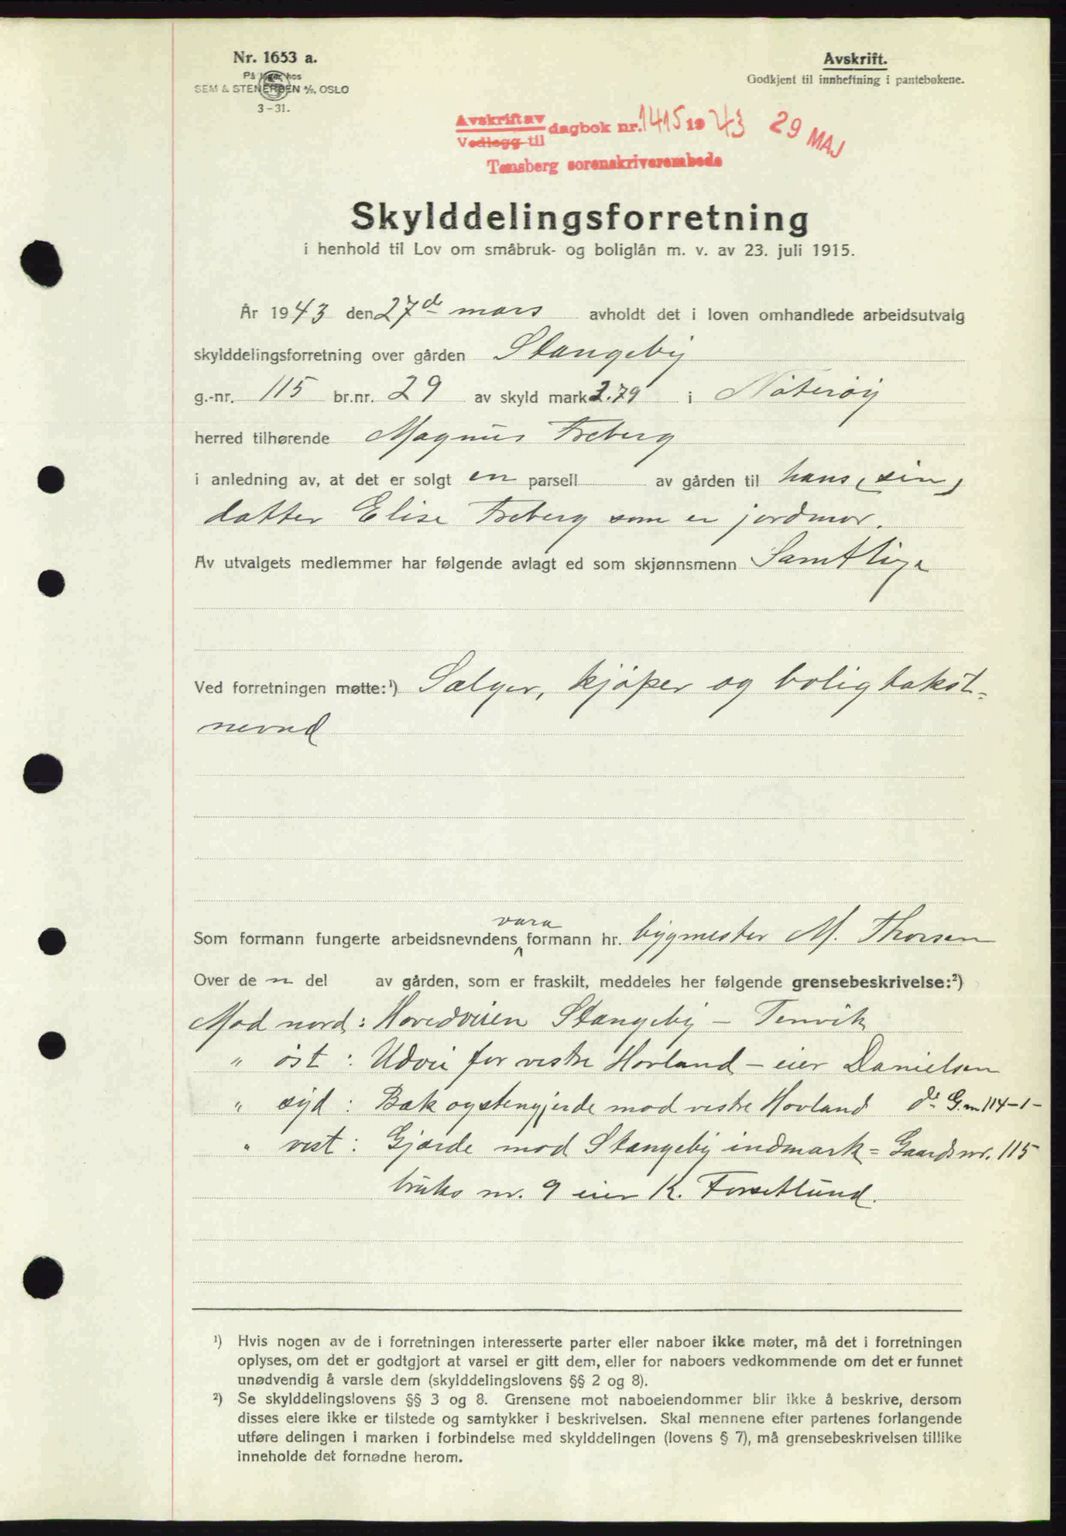 Nr. 1653 a.
På lager hos
SEM & STENERSEN A/S, OSLO
3-31.
Avskrift.
Godkjent til innheftning i pantebøkene.
Avskrift av
Vedlegg til
dagbok nr. 1415 1943 29 MAJ
Tønsberg sorenskriverembede
Skylddelingsforretning
i henhold til Lov om småbruk- og boliglån m. v. av 23. juli 1915.
År 1943 den 27de mars avholdt det i loven omhandlede arbeidsutvalg
skylddelingsforretning over gården Stangeby
g.-nr. 115 br.nr. 29 av skyld mark 2.79 i Nøterøy
herred tilhørende Magnus Freberg
i anledning av, at det er solgt en parsell av gården til hans (sin)
datter Elise Freberg som er jordmor.
Av utvalgets medlemmer har følgende avlagt ed som skjønnsmenn Samtlige
Ved forretningen møtte:¹) Sælger, kjøper og boligtakst-
nevnd
vara
Som formann fungerte arbeidsnevndens formann hr. bygmester M. Thorsen
Over de n del av gården, som er fraskilt, meddeles her følgende grensebeskrivelse:²)
Mod nord: Hovedveien Stangeby - Tenvik
" øst : Udvei for vestre Hovland - eier Danielsen
" syd : Bæk og stengjerde mod vestre Hovland do G.nr 114-1-
" vest : Gjærde mod Stangeby indmark = Gaards nr. 115
bruks nr. 9 eier K. Forsetlund.
¹) Hvis nogen av de i forretningen interesserte parter eller naboer ikke møter, må det i forretningen
oplyses, om det er godtgjort at varsel er gitt dem, eller for naboers vedkommende om det er funnet
unødvendig å varsle dem (skylddelingslovens §§ 2 og 8).
²) Se skylddelingslovens §§ 3 og 8. Grensene mot naboeiendommer blir ikke å beskrive, dersom
disses eiere ikke er tilstede og samtykker i beskrivelsen. Skal mennene efter partenes forlangende
utføre delingen i marken i forbindelse med skylddelingen (lovens § 7), må grensebeskrivelsen tillike
inneholde det fornødne herom.